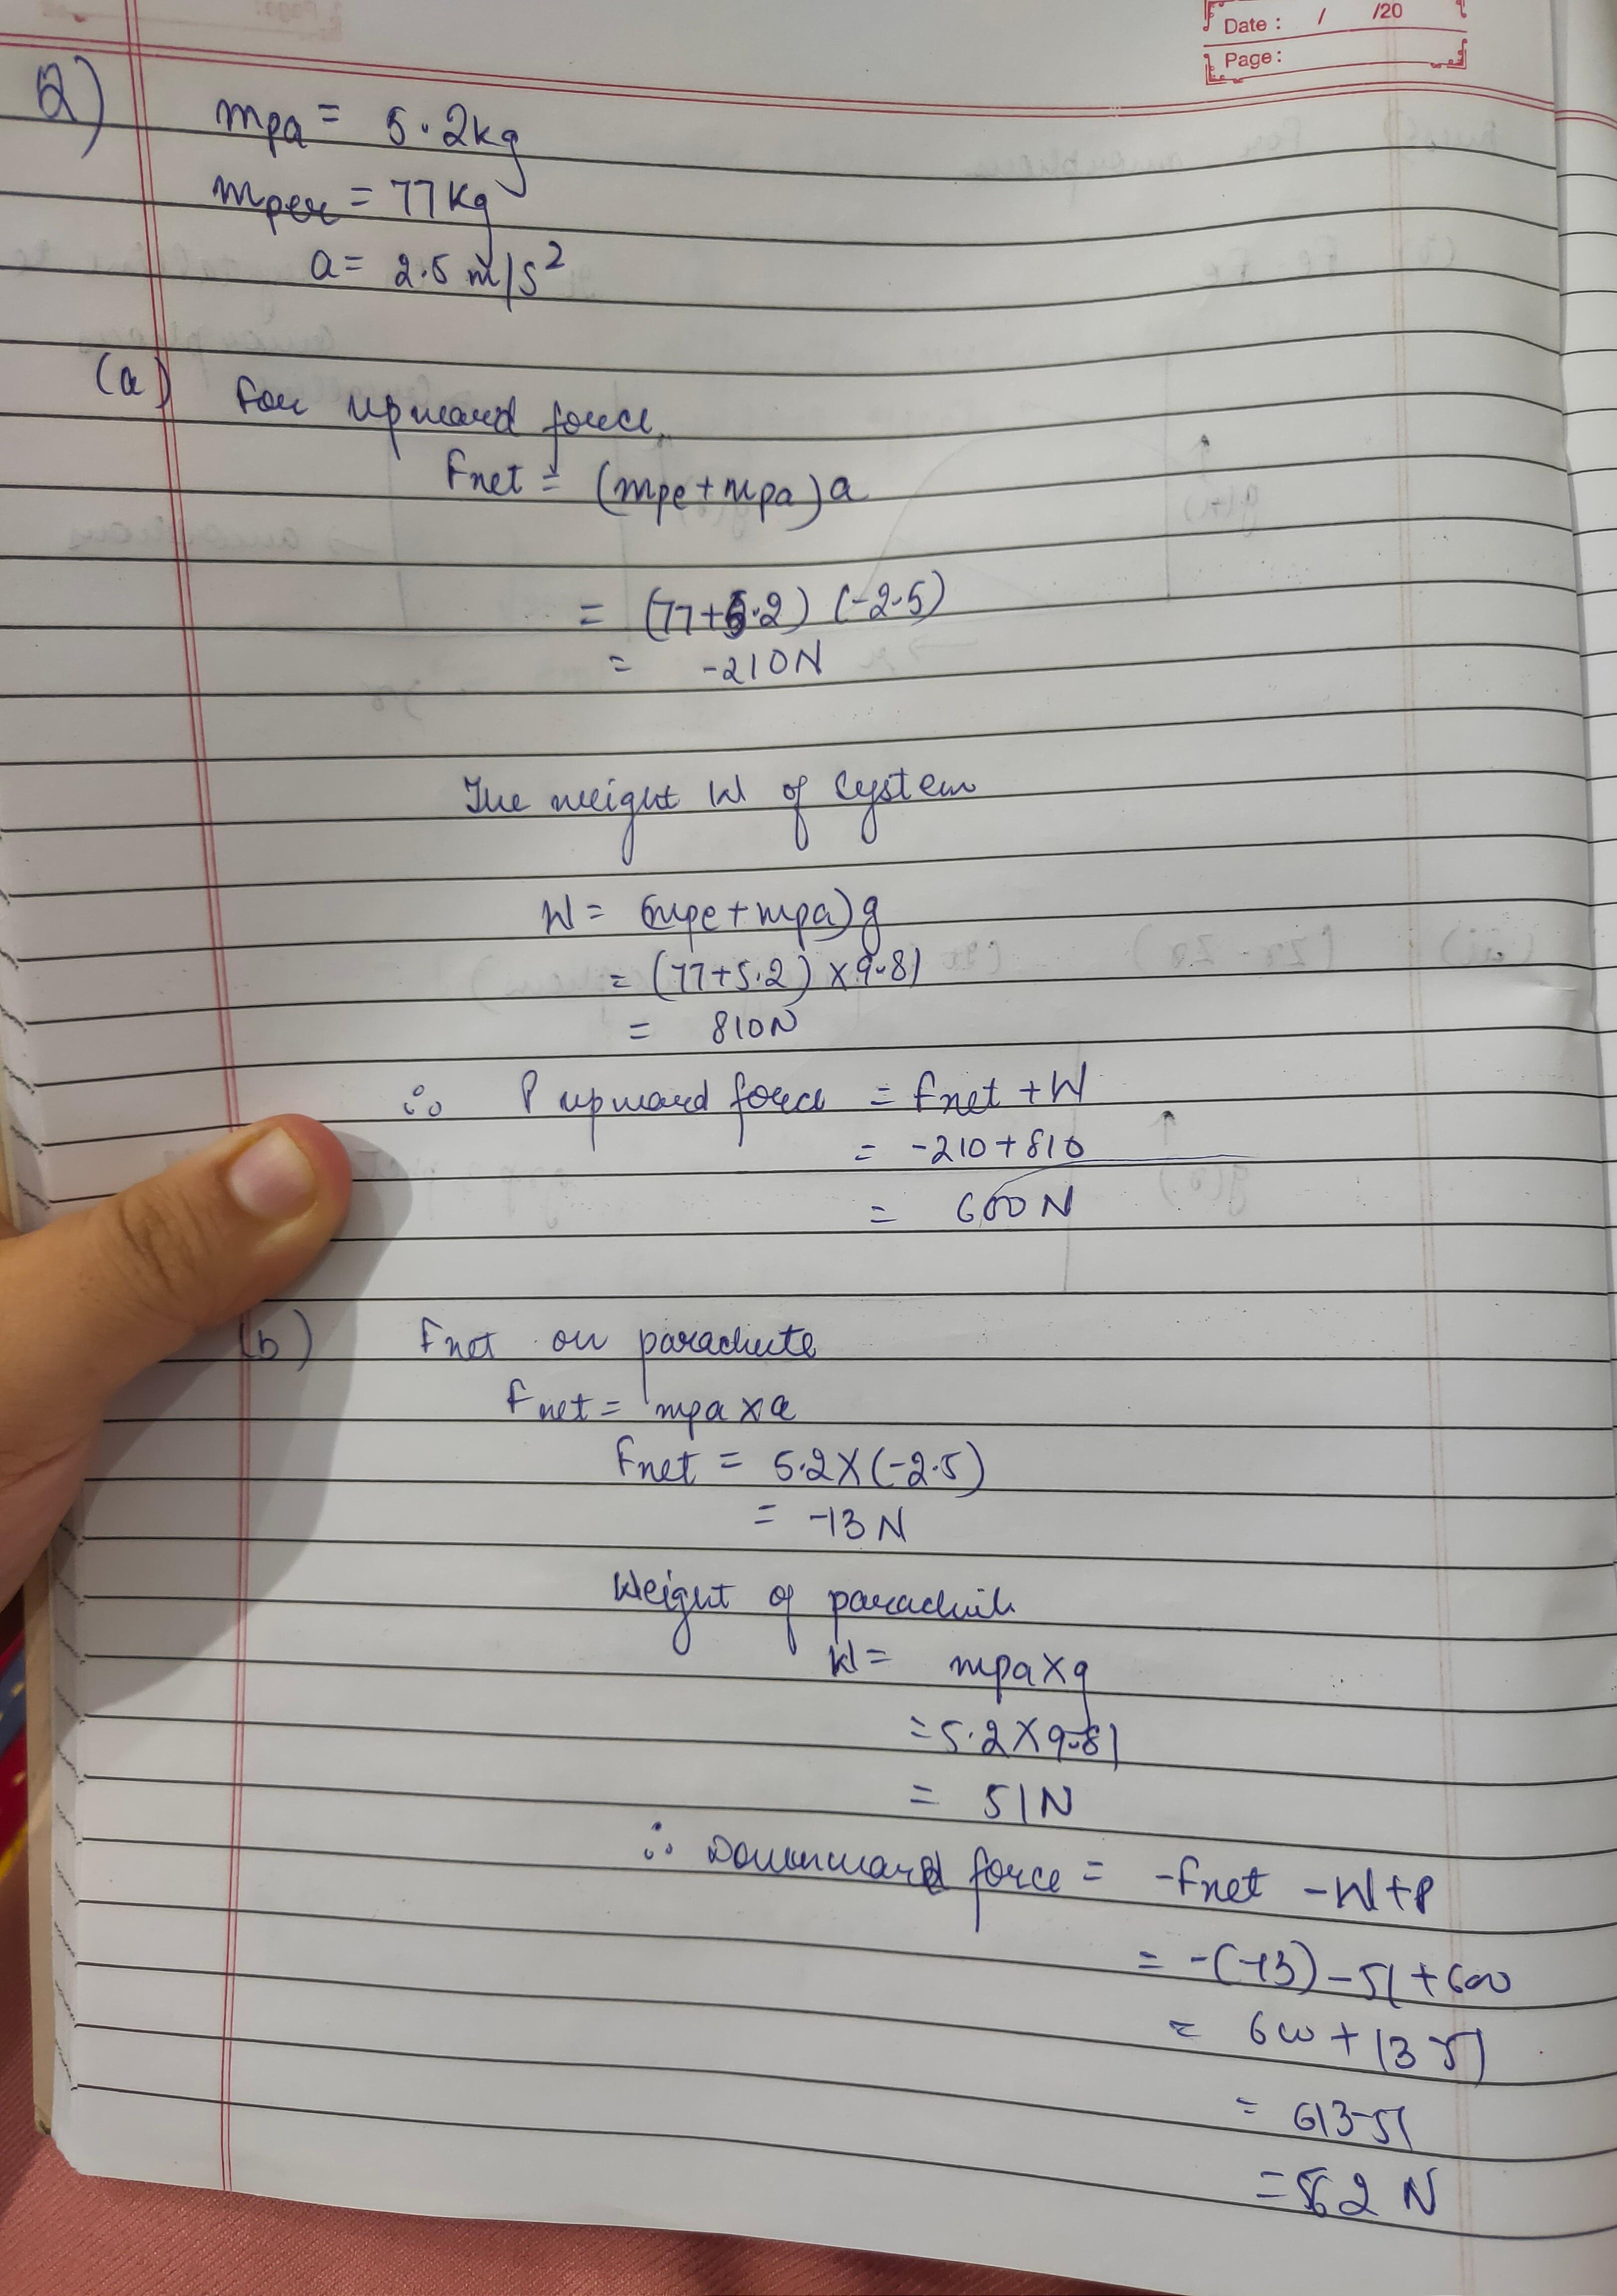 Date : / /20
Page :
2)
mpa = 5.2kg
mper = 77kg
a = 2.5 m/s²
(a) For upward force,
Fnet = (mpe+mpa)a
= (77+5.2) (-2.5)
= -210N
The weight W of System
W = (mpe+mpa)g
= (77+5.2) x 9.81
= 810N
∴ P upward force = Fnet + W
= -210+810
= 600N
(b) Fnet on parachute
Fnet = mpa x a
Fnet = 5.2 X (-2.5)
= -13 N
Weight of parachute
W = mpa x g
= 5.2 X 9.81
= 51N
∴ Downward force = -Fnet - W+P
= -(-13) - 51 + 600
= 600 + 13 51
= 613-51
= 562 N